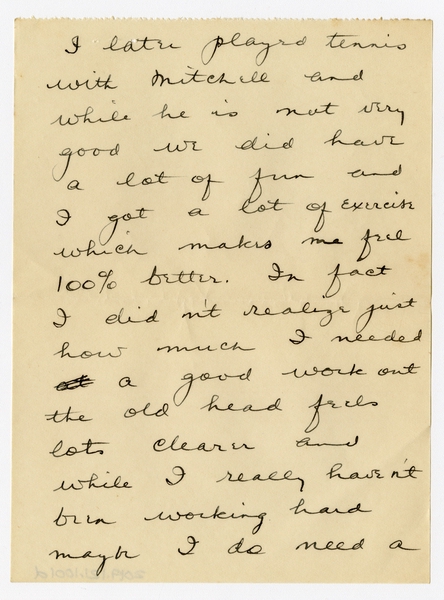 I later played tennis
with Mitchell and
while he is not very
good we did have
a lot of fun and
I got a lot of exercise
which makes me feel
100% better. In fact
I did n't realize just
how much I needed
a good work out
the old head feels
lots clearer and
while I really haven't
been working hard
maybe I do need a